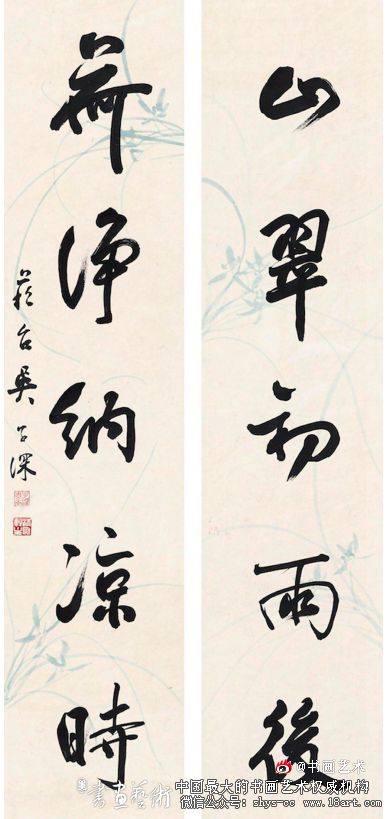 山翠初雨後
荷淨納涼時
吳子深
@书画艺术
書畫藝術
中国最大的书画艺术权威机构
微信公众号：shys-cc www.18art.com